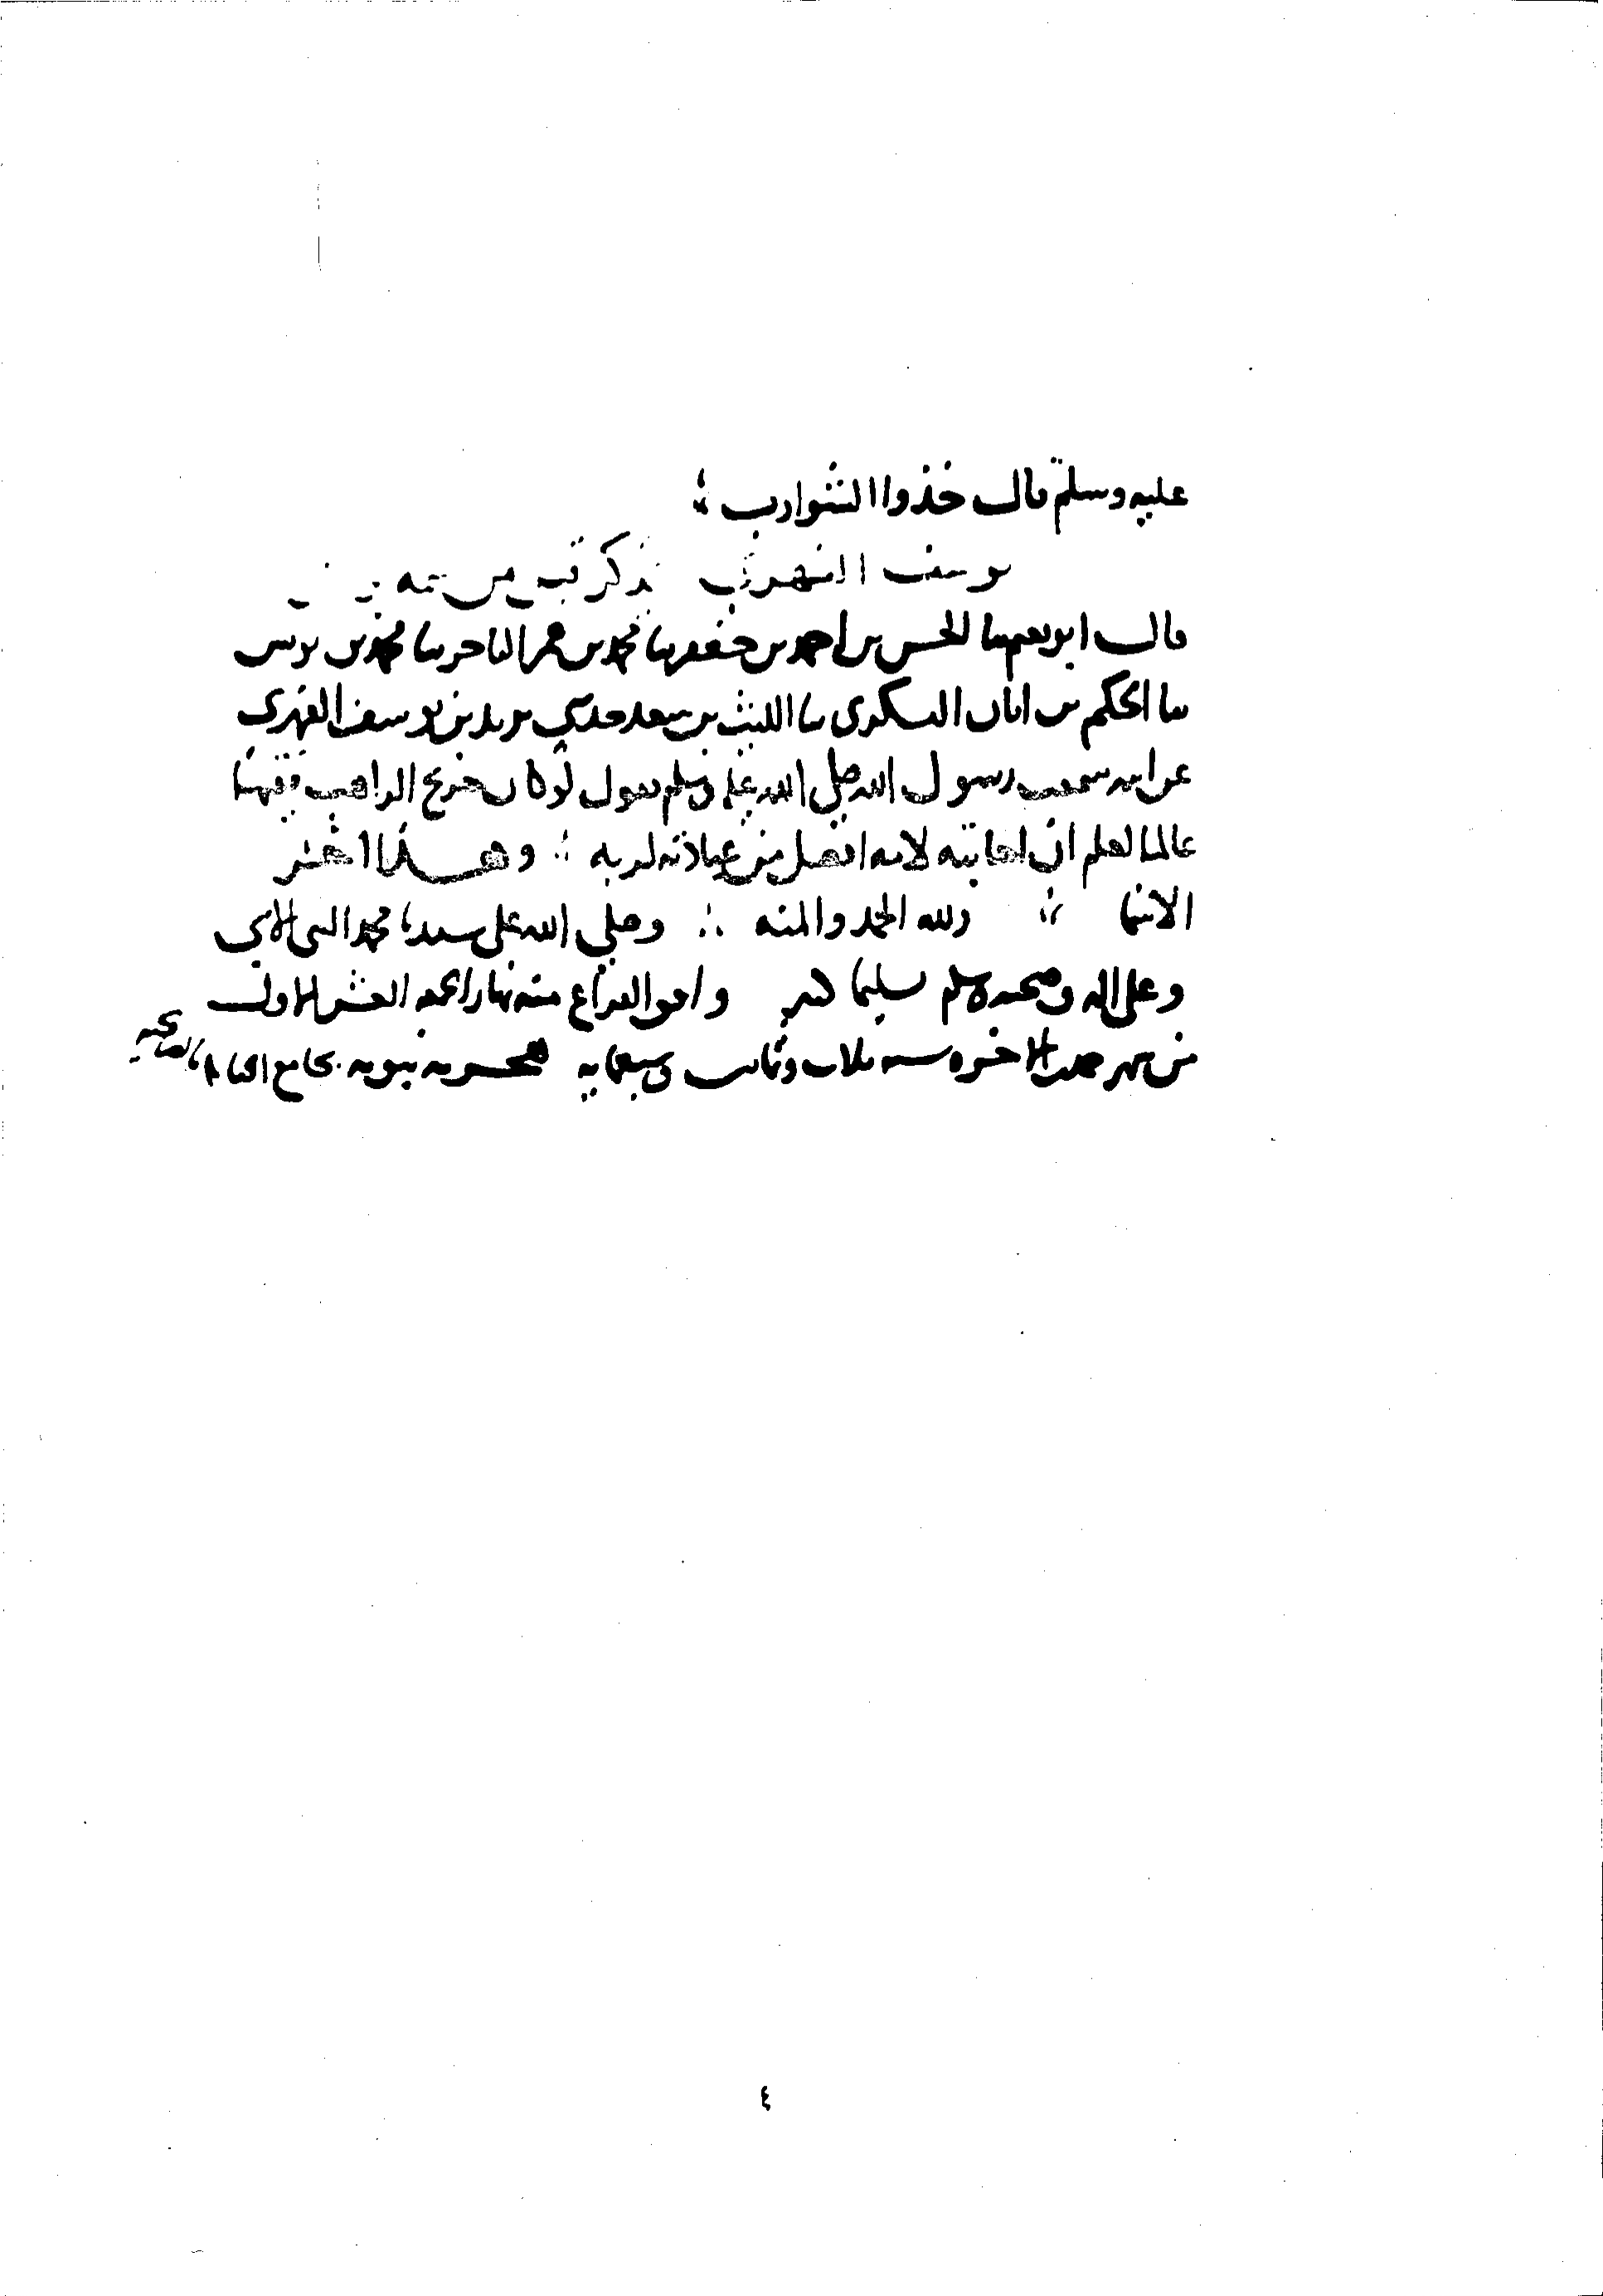 عليه وسلم قال خذوا الشوارب
يوسف الفهري ذكر فيمن
قال ابو نعيم ثنا الحسن بن احمد بن جعفر ثنا محمد بن عمر التاجر ثنا محمد بن يونس
ثنا الحكم بن ابان اليشكري ثنا الليث بن سعد حدثني يزيد بن يوسف الفهري
عن ابيه سمعت رسول الله صلى الله عليه وسلم يقول لو كان جريج الراهب فقيها
عالما لعلم ان اجابته لامه افضل من عبادته لربه وهذا اخر
الانتقا ولله الحمد والمنه وصلى الله على سيدنا محمد النبي الامي
وعلى اله وصحبه وسلم تسليما كثيرا وافق الفراغ منه نهار الجمعه العشر الاول
من شهر جمادى الاخره سنه ثلاث وثمانين وسبعمايه بجامع
٤